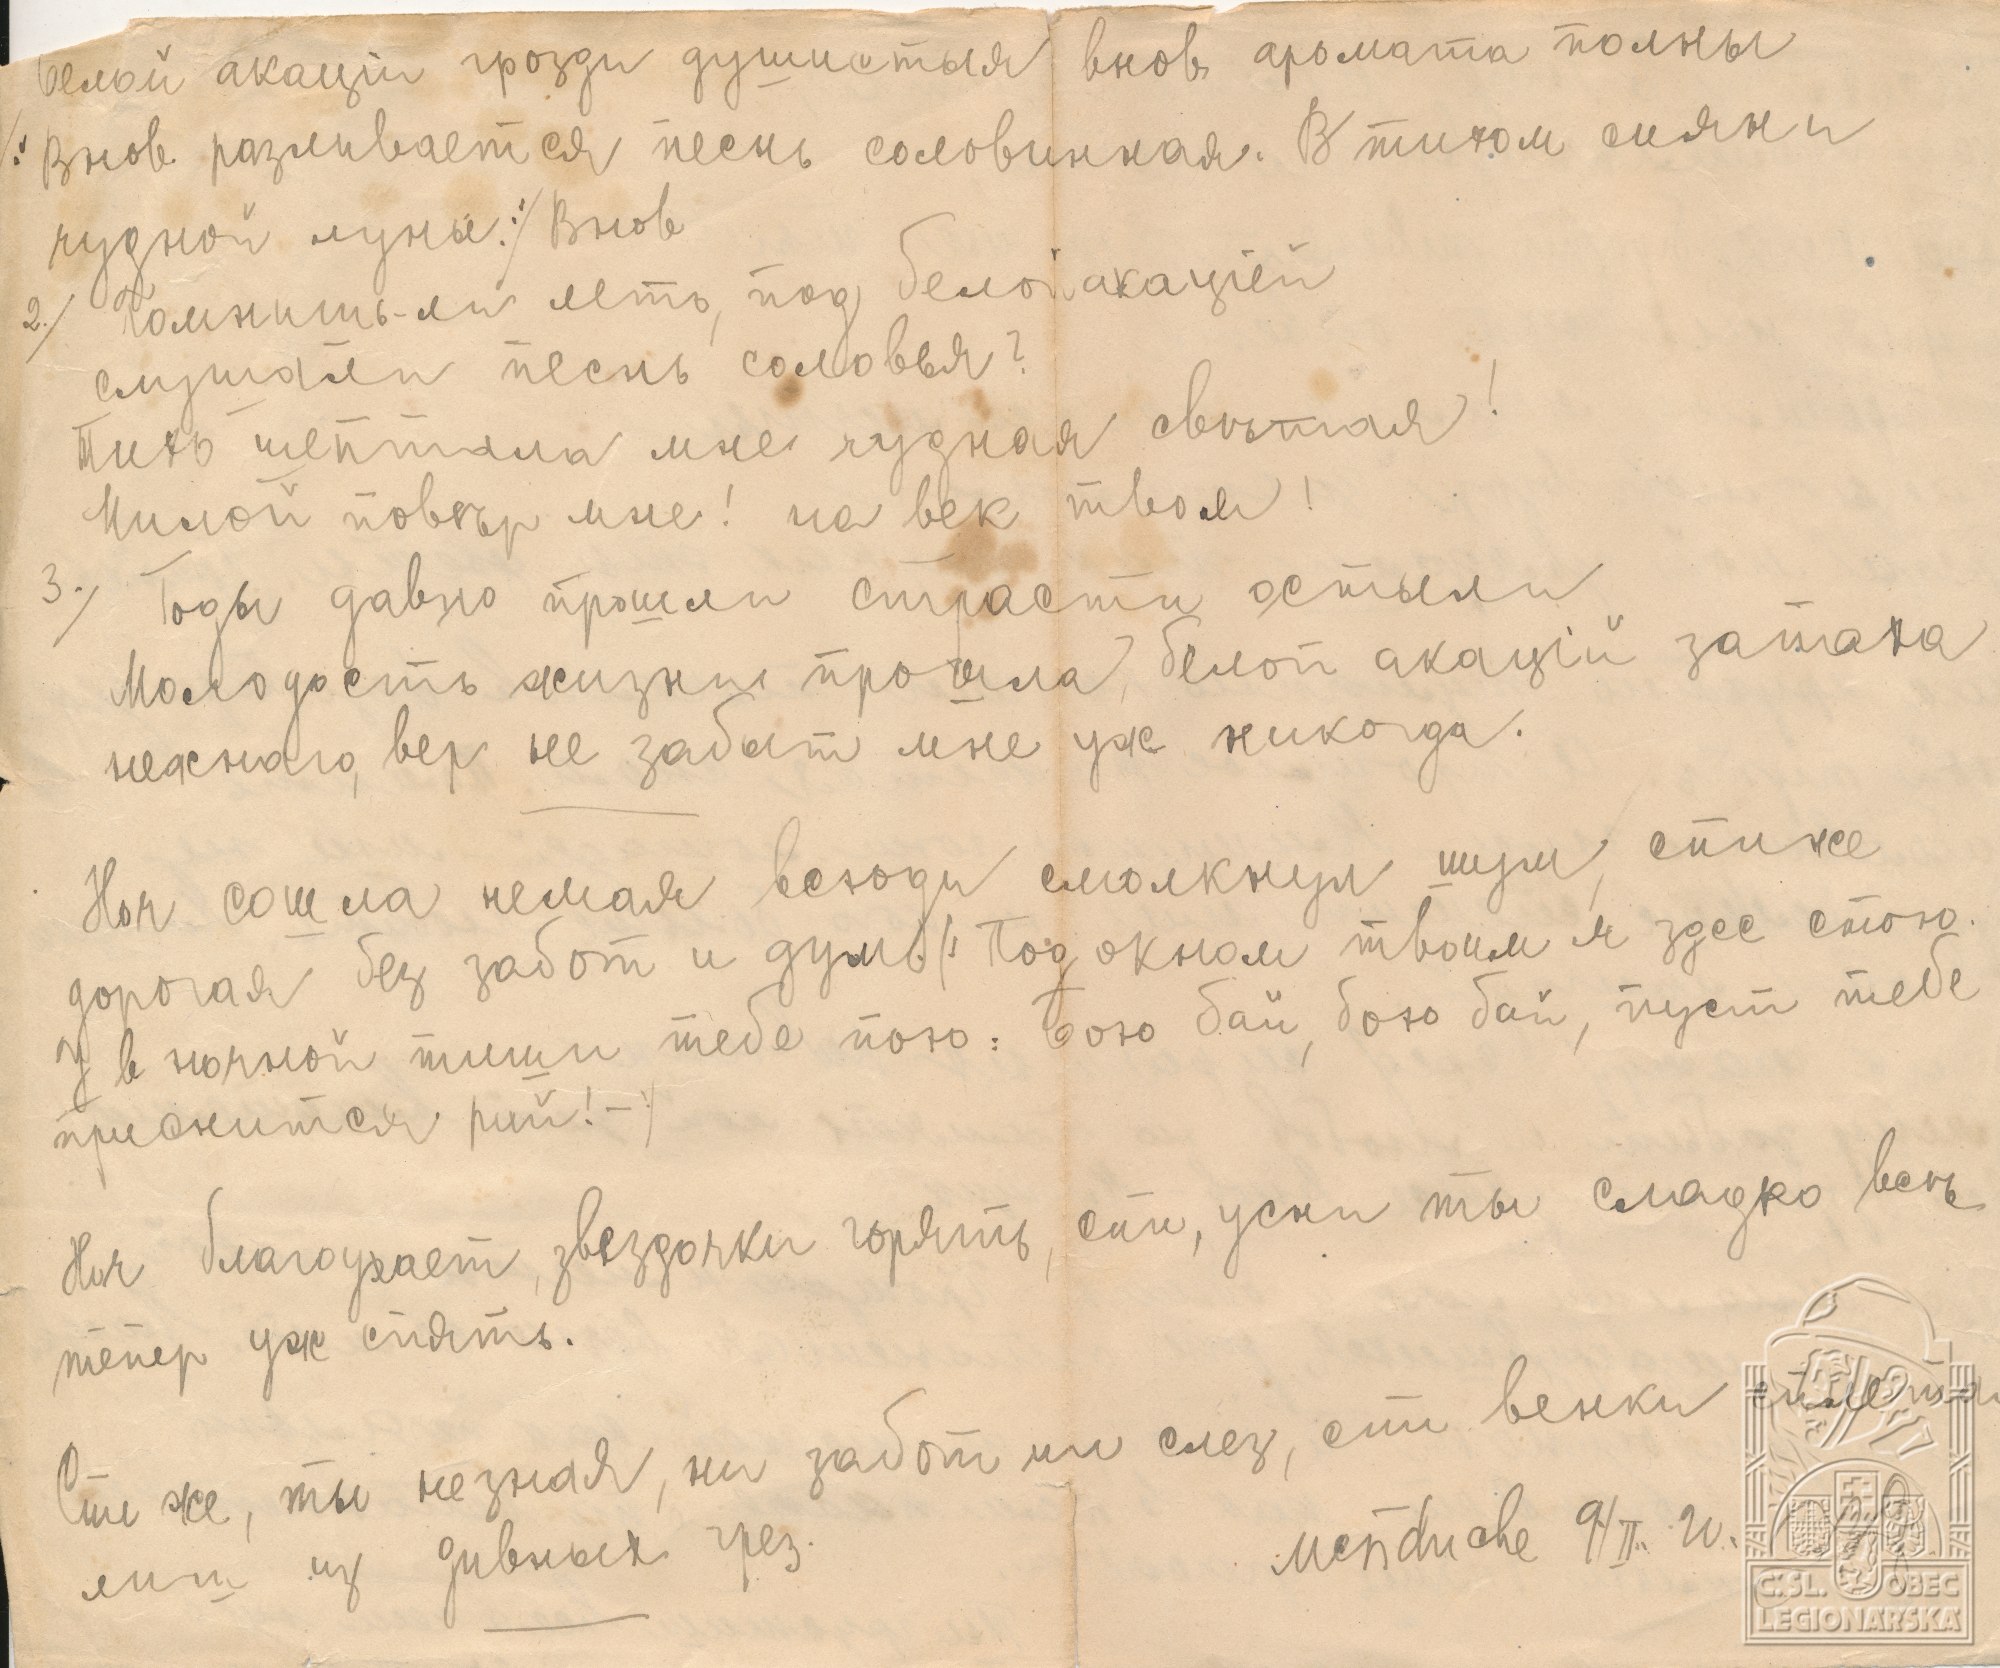 Белой акаціи грозди душистыя внов аромата полны
/: Внов разливается песнь соловинная. В тихом сияни
чудной луны :/ Внов
2./ Помнишь-ли лето, под белой акаціей
слушали песнь соловья?
Тихо шептала мне чудная светлая!
Милой поверър мне! на век твоя!
3./ Годы давно прошли страсти остыли
Молодость жизни прошла, белой акаціи запаха
нежнаго, вер не забыт мне уж никогда.
Ноч сошла немая всюди смолкнул шум, спи же
дорогая без забот и дум. /: Под окном твоим я здес стою.
У в ночной тиши тебе пою: Баю бай, баю бай, пуст тебе
приснится рай! - :/
Ноч благоухает, звездочки горять, спи, усни ты сладко весь
тепер уж спять.
Спи же, ты незная, ни забот ни слез, спи венки сплетай
лиш из дивных грез.
9/II. 20.
Č. SL. OBEC
LEGIONÁŘSKÁ